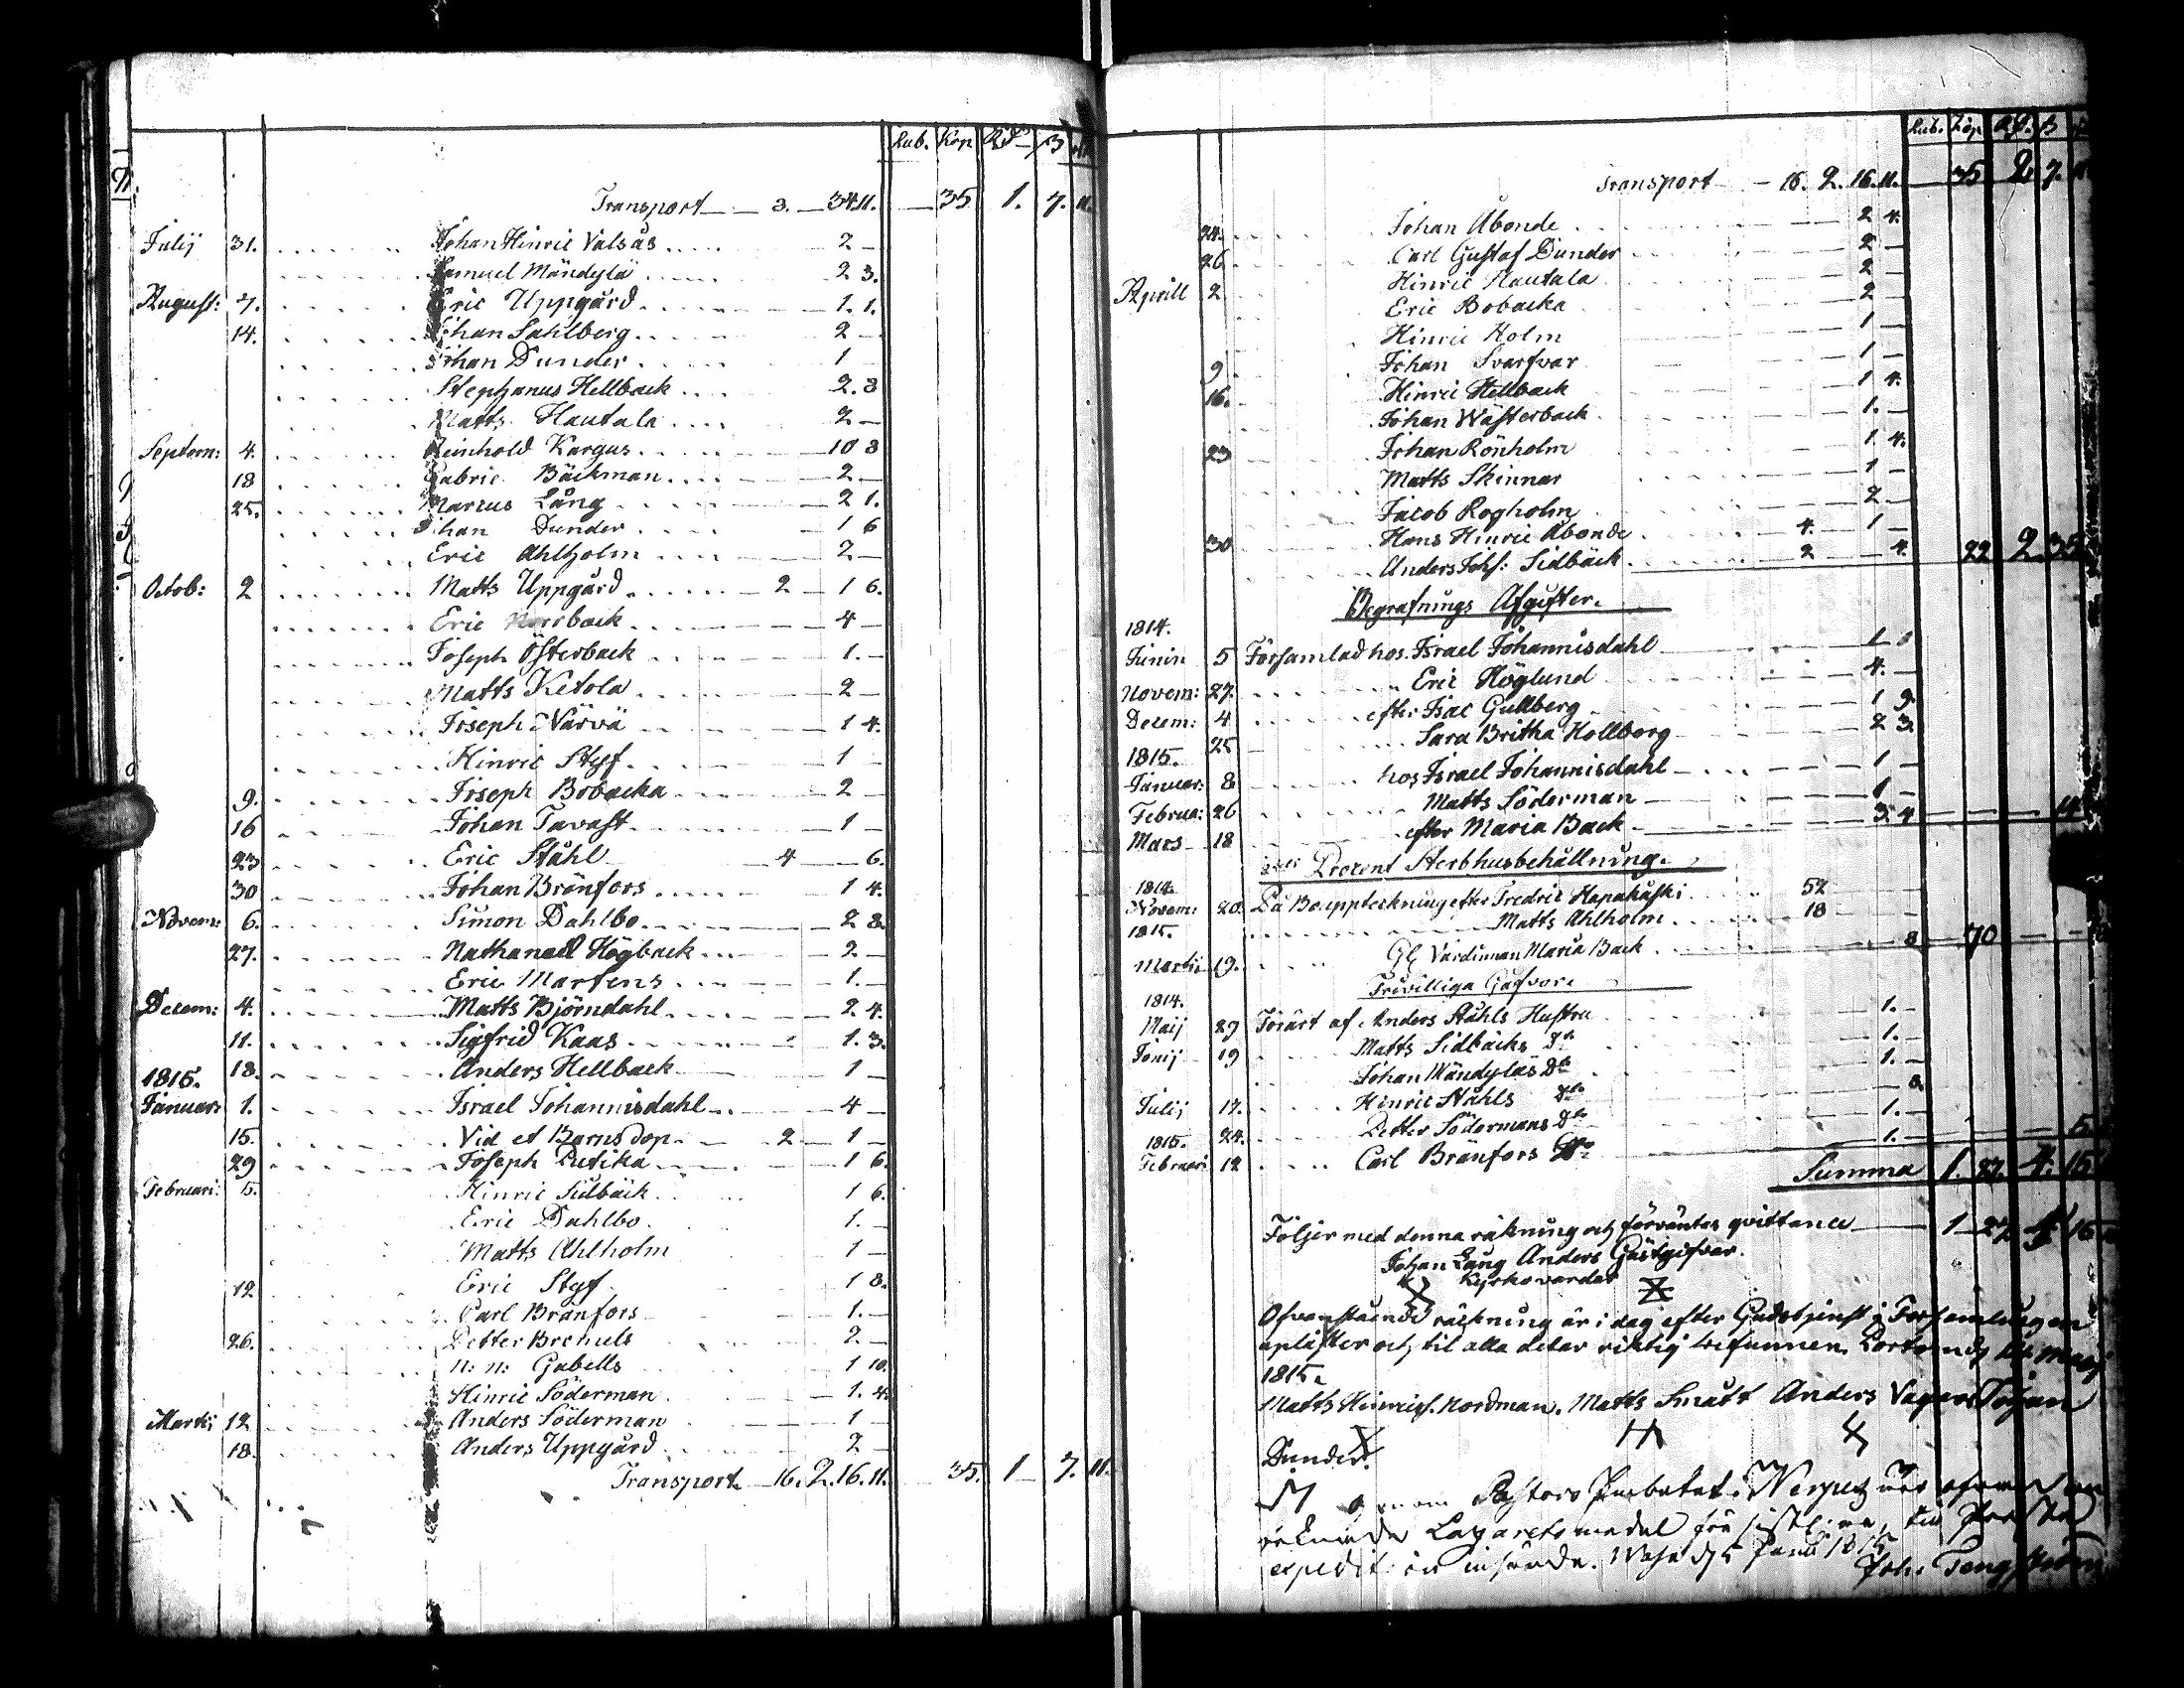 Rub. Kop Rd ß
Transport 3. 34 11. 35 1. 7. 11.
Julij 31. Johan Hinric Valsås 2
Samuel Mändylä 2 3.
August: 7. Eric Uppgård 1. 1.
14. Johan Sahlberg 2
Johan Dunder 1
Stephanus Hellback 2. 3
Matts Hautala 2
Septem: 4. Reinhold Kargus 10 8
18 Gabriel Bäckman 2
25. Marcus Lång 2 1.
Johan Dunder 1 6
Eric Ahlholm 2
Octob: 2 Matts Uppgård 2 1 6.
Eric Norrback 4
Joseph Österback 1.
Matts Ketola 2
Joseph Närvä 1 4.
Hinric Styf 1
9. Joseph Bobacka 2
16 Johan Tavast 1
23 Eric Ståhl 4 6.
30 Johan Bränfors 1 4.
Novem: 6. Simon Dahlbo 2 8.
27. Nathanael Högback 2.
Eric Martens 1.
Decem: 4. Matts Björndahl 2 4.
11. Sigfrid Kaas 1. 3.
18. Anders Hellback 1
1815.
Januar: 1. Israel Johannisdahl 4
15. Vid et Barns dop 2 1
29 Joseph Putika 1 6.
Februari: 5. Hinric Sidbäck 1 6.
Eric Dahlbo 1.
Matts Ahlholm 1
12 Eric Styf 1 8.
Carl Bränfors 1.
26. Petter Brenuls 2.
n: n: Gabells 1 10.
Hinric Söderman 1. 4.
Martii 12 Anders Söderman 1
18. Anders Uppgård 2
Transport 16. 2. 16. 11. 35. 1 7. 11.
Rub. Kop Rd. ß
Transport 16. 2. 16. 11. 35 2 7.
24. Johan Åbonde 2 4.
26 Carl Gustaf Dunder 2
Hinric Hautala 2
Aprill 2 Eric Bobacka 2
Hinric Holm 1
Johan Svarfvar 1
9 Hinric Hellback 1 4.
16. Johan Wästerback 1.
23 Johan Rönholm 1 4.
Matts Skinnar 1
Jacob Rogholm 2
30 Hans Hinric Åbonde 4. 1
Anders Johs: Sidbäck 2 4. 22 2 35
Begrafnings Afgifter.
1814.
Junin 5 Församlad hos Israel Johannisdahl 1
Novem: 27. Eric Höglund 4.
Decem: 4 efter Isac Gullberg 1 9.
25 Sara Britha Hollborg 2 3.
1815.
Januar: 8 hos Israel Johannisdahl 1
Februa: 26 Matts Söderman 1
Mars 18 efter Maria Back 3. 4 14
Procent Sterbhusbehållning.
1814.
Novem: 20. På Bouppteckning efter Fredric Hapakåski 52
Matts Ahlholm 18
1815.
Martii 19. Gl Värdinnan Maria Back 8 70
Frivilliga Gåfvor.
1814.
Maij 29 Förärt af Anders Ståhls Hustru 1.
Jonij 19 Matts Sidbäcks do 1.
Johan Mändyläs do 1.
Julij 17. Hinric Ståhls do 8.
24. Petter Södermans do 1.
1815.
Februari 12 Carl Bränfors 1. 5
Summa 1. 27. 4. 15
Följer med denna räkning och förväntas qvittance 1 27 4 16
Johan Lång Anders Gästgifvar.
Kyrkovärdar
Ofvanstående räkning är i dag efter Gudstjenst i Församlingen
upläsen och til alla delar riktig befunnen. Maij
1815.
Matts Hinrichs. Nordman. Matts Smått Anders Vagars Johan
Dunder.
Pastors
Lazaretsmedel
expedit
1815
Joh.